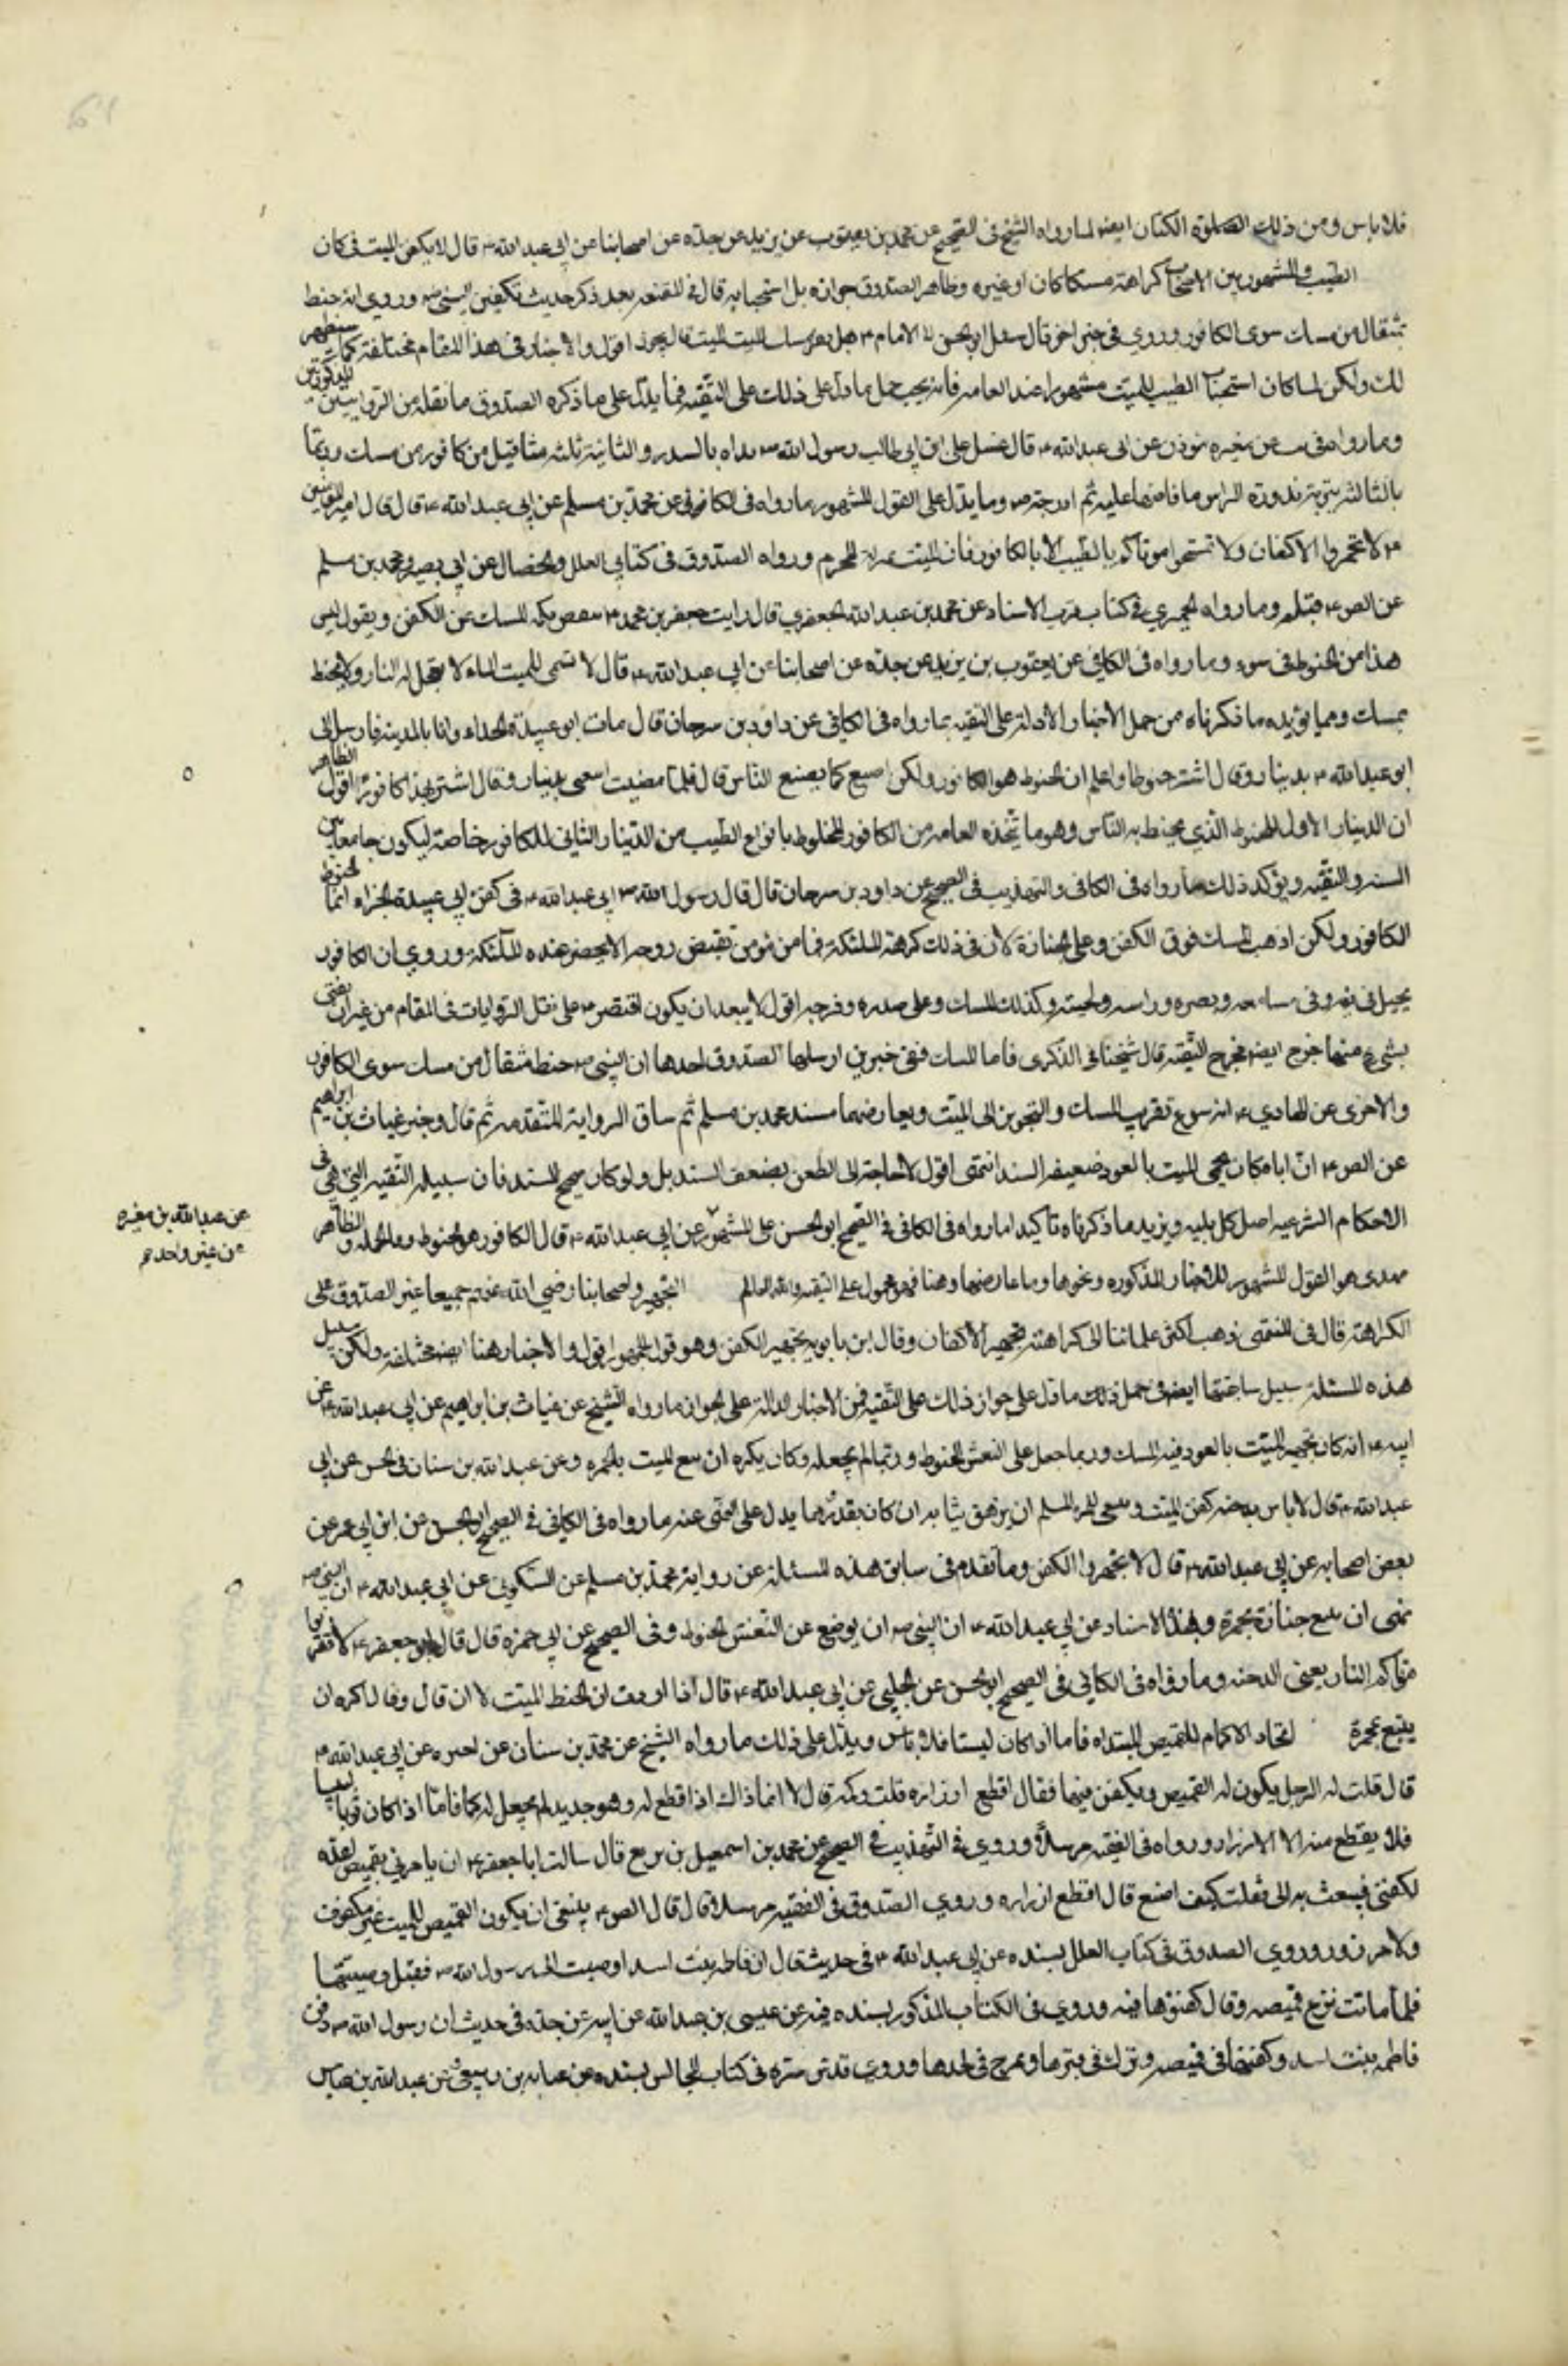 فلا باس ومن ذلك الكتان ايضا لما رواه الشيخ في الصحيح عن محمد بن يعقوب عن يزيد عن جده عن اصحابنا عن ابي عبد الله ع قال لا يكفن الميت في كتان
الطيب والمشهور بين الاصحاب كراهته مسكا كان او غيره وظاهر الصدوق جوازه بل استحبابه قال في الفقيه بعد ذكر حديث تكفين النبي ص وروي انه حنط
بمثقال من مسك سوى الكافور وروي في خبر اخر قال سئل ابو الحسن الامام ع هل الميت اقول والاخبار في هذا المقام مختلفة كما سيظهر
لك ولكن لما كان استحباب الطيب للميت مشهورا عند العامه فانه يجب حمل ما دل على ذلك على التقيه فمما يدل على ما ذكره الصدوق ما نقله من الروايتين المذكورتين
وما رواه في عن مغيره مؤذن عن ابي عبد الله ع قال غسل علي ابن ابي طالب رسول الله ص بداه بالسدر والثانية ثلثه مثاقيل من كافور من مسك ودعا
بالثالثه بقربة الراس فافاضها عليه ثم ادرجه ص وما يدل على القول المشهور ما رواه في الكافي عن محمد بن مسلم عن ابي عبد الله ع قال قال امير المؤمنين
ع لا تجمروا الاكفان ولا تمسحوا موتاكم بالطيب الا بالكافور فان الميت بمنزلة المحرم ورواه الصدوق في كتابي العلل والخصال عن ابي بصير ومحمد بن مسلم
عن الص ع مثله وما رواه الحميري في كتاب قرب الاسناد عن محمد بن عبد الله الجعفري قال رايت جعفر بن محمد ع ينفض بكمه المسك عن الكفن ويقول ليس
هذا من الحنوط في شيء وما رواه في الكافي عن يعقوب بن يزيد عن جده عن اصحابنا عن ابي عبد الله ع قال لا تسخن للميت الماء لا يعجل له النار ولا يحنط
بمسك ومما يؤيده ما ذكرناه من حمل الاخبار الاوله على التقيه ما رواه في الكافي عن داود بن سرحان قال مات ابو عبيدة الحذاء وانا بالمدينه فارسل الي
ابو عبد الله ع بدينار وقال اشتر حنوطا واعلم ان الحنوط هو الكافور ولكن اصنع كما يصنع الناس قال فلما مضيت اتبعني بدينار وقال اشتر بهذا كافورا اقول الظاهر
ان الدينار الاول للحنوط الذي يحنط به الناس وهو ما تتخذه العامه من الكافور المخلوط بانواع الطيب من والدينار الثاني للكافور خاصة ليكون جامعا بين
السنه والتقيه ويؤكد ذلك ما رواه في الكافي والتهذيب في الصحيح عن داود بن سرحان قال قال ابي عبد الله ع في كفن ابي عبيدة الحذاء انما الحنوط
الكافور ولكن اذهب المسك فوق الكفن وعلى الجنازة لان في ذلك كرهته الملئكة فما من مؤمن تقبض روحه الا يحضر عنده الملئكة وروي ان الكافور
يجعل في فيه وفي مسامعه وبصره وراسه ولحيته وكذلك المسك وعلى صدره وفرجه اقول لا يبعد ان يكون اقتصر ع على نقل الروايات في المقام من غير ان يفتي
بشيء منها خرج ايضا مخرج التقيه قال شيخنا في الذكرى فاما المسك ففي خبرين ارسلهما الصدوق احدهما ان النبي ص حنط بمثقال من مسك سوى الكافور
والاخرى عن الهادي ع انه سوغ تقريب المسك والبخور الى الميت ويعارضهما مسند محمد بن مسلم ثم ساق الرواية المتقدمه ثم قال وخبر غياث بن ابراهيم
عن الص ع ان اباه كان يجمر الميت بالعود ضعيف السند انتهى اقول لا حاجة الى الطعن بضعف السند بل ولو كان صحيح السند فان سبيله التقيه التي هي في
الاحكام الشرعيه اصل كل بليه ويزيد ما ذكرناه تاكيدا ما رواه في الكافي في الصحيح او الحسن على المشهور عن ابي عبد الله ع قال الكافور هو الحنوط وبالجملة فالظاهر
عن عبد الله بن مغيره
عن غير واحد
عندي هو القول المشهور للاخبار المذكوره ونحوها وما عارضها وهنا فهو محمول على التقيه والله العالم التجمير واصحابنا رضي الله عنهم جميعا غير الصدوق على
الكراهة قال في المنتهى ذهب اكثر علمائنا الى كراهته تجمير الاكفان وقال ابن بابويه يجمر الكفن وهو قول الجمهور اقول والاخبار هنا ايضا مختلفة ولكن سبيل
هذه المسئلة سبيل سابقتها ايضا في حمل ما دل على جواز ذلك على التقيه فمن الاخبار الداله على الجواز ما رواه الشيخ عن غياث بن ابراهيم عن ابي عبد الله ع عن
ابيه ع انه كان يجمر الميت بالعود فيه المسك وربما جعل على النعش الحنوط وربما لم يجعله وكان يكره ان يتبع الميت بالمجمرة وعن عبد الله بن سنان في الحسن عن ابي
عبد الله ع قال لا باس بدخنه كفن الميت وينبغي للمرء المسلم ان يدخن ثيابه ان كان يقدر ومما يدل على النهي عنه ما رواه في الكافي في الصحيح او الحسن عن ابن ابي عمير عن
بعض اصحابه عن ابي عبد الله ع قال لا يجمروا الكفن وما تقدم في سابق هذه المسئلة عن رواية محمد بن مسلم عن السكوني عن ابي عبد الله ع ان النبي ص
نهى ان يتبع جنازة بمجمرة وبهذا الاسناد عن ابي عبد الله ع ان النبي ص ان يوضع عن النعش الحنوط وفي الصحيح عن ابي حمزه قال قال ابو جعفر ع لا تقربوا
موتاكم النار يعني الدخنه وما رواه في الكافي في الصحيح او الحسن عن الحلبي عن ابي عبد الله ع قال اذا اردت ان تحنط الميت الى ان قال وقال اكره ان
يتبع بمجمرة اتخاذ الاكمام للقميص المبتداه فاما اذا كان لبيسا فلا باس ويدل على ذلك ما رواه الشيخ عن محمد بن سنان عن اخبره عن ابي عبد الله ع
قال قلت له الرجل يكون له القميص ويكفن فيها فقال اقطع ازراره قلت وكمه قال لا انما ذاك اذا قطع له وهو جديد لم يجعل له كما فاما اذا كان ثوبا لبيسا
فلا يقطع منه الا الازرار ورواه في الفقيه مرسلا وروي في التهذيب في الصحيح عن محمد بن اسمعيل بن بزيع قال سالت ابا جعفر ع ان يامر لي بقميص اعده
لكفني فبعث به الى فقلت كيف اصنع قال اقطع ازراره وروى الصدوق في الفقيه مرسلا قال قال الص ع ينبغي ان يكون القميص للميت غير مكفوف
ولا مزرور وروى الصدوق في كتاب العلل بسنده عن ابي عبد الله ع في حديث قال ان فاطمه بنت اسد اوصت الى رسول الله ص فقبل وصيتها
فلما ماتت نزع قميصه وقال كفنوها فيه وروي في الكتاب المذكور بسنده فيه عن عيسى بن عبد الله عن ابيه عن جده في حديث ان رسول الله ص دفن
فاطمه بنت اسد وكفنها في قميصه ونزل في قبرها وتمرغ في لحدها وروى قدس سره في كتاب المجالس بسنده عن عبايه بن ربعي عن عبد الله بن عباس